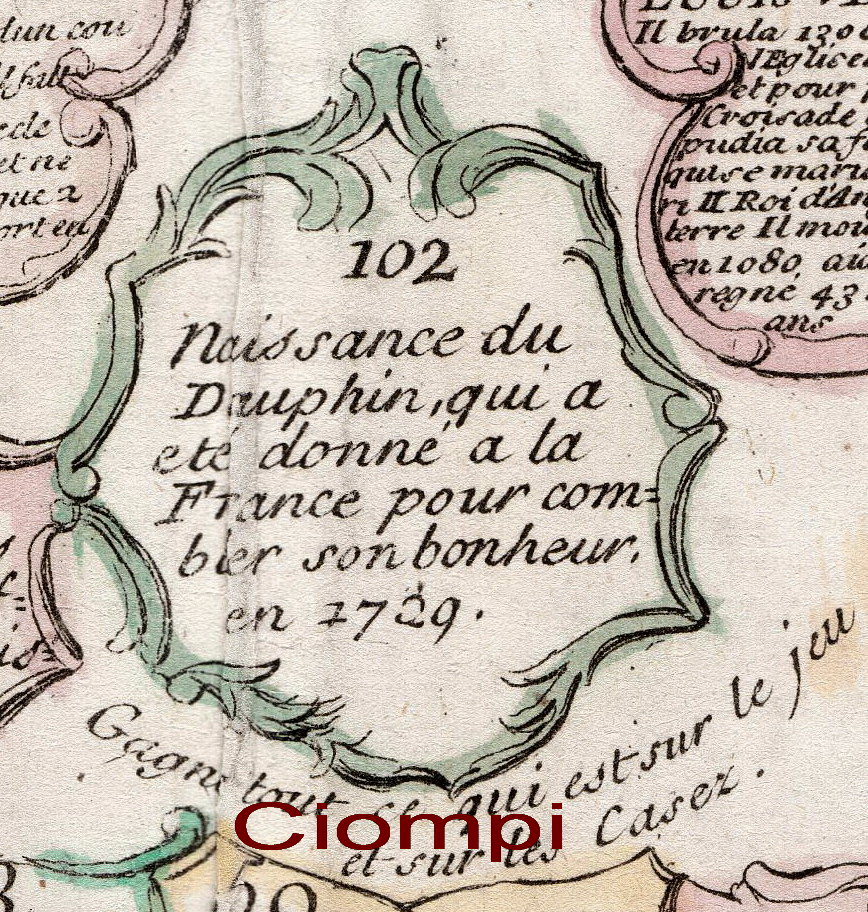 dun cou
et ne
que 2
ort en
Il brula 1300
et pour
Croisade
pudia sa
qui se mari
ri II Roi d'An
terre Il mou
en 1080 au
regné 43
ans
102
Naissance du
Dauphin, qui a
eté donné a la
France pour com=
bler son bonheur.
en 1729.
Gagne tout ce qui est sur le jeu
et sur les Casez.
Ciompi